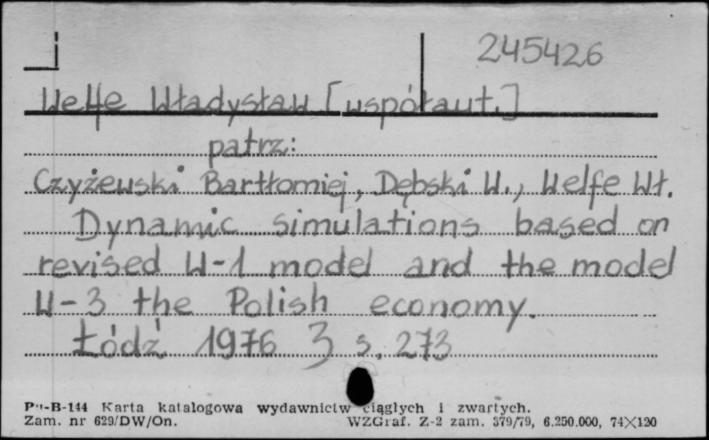 245426
Welfe Władysław [współaut.]
patrz:
Czyżewski Bartłomiej, Dębski W., Welfe Wł.
Dynamic simulations based on
revised W-1 model and the model
W-3 the Polish economy.
Łódź 1976 3 s. 273
Pu-B-144 Karta katalogowa wydawnictw ciągłych i zwartych.
Zam. nr 629/DW/On. WZGraf. Z-2 zam. 379/79, 6.250.000, 74×120